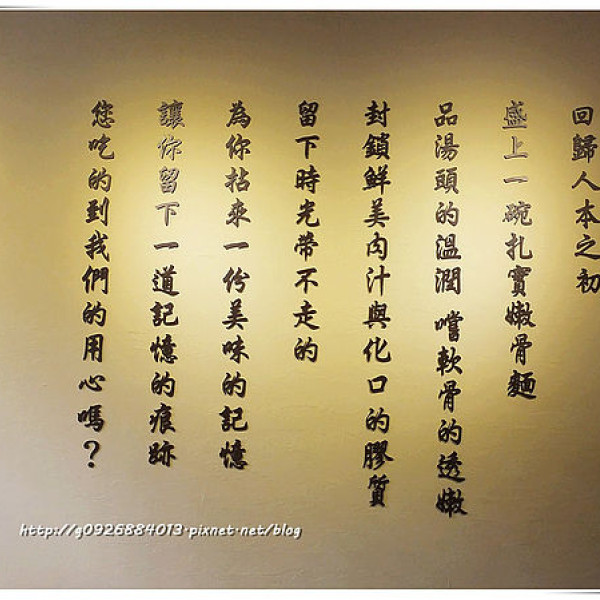 回歸人本之初
盛上一碗扎實嫩骨麵
品湯頭的溫潤 嚐軟骨的透嫩
封鎖鮮美肉汁與化口的膠質
留下時光帶不走的
為你拈來一份美味的記憶
讓你留下一道記憶的痕跡
您吃的到我們的用心嗎？
http://g0926884013.pixnet.net/blog